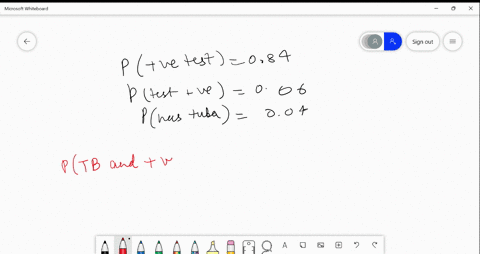 Microsoft Whiteboard
Sign out
P(+ve test) = 0.84
P(test +ve) = 0.06
P(has tuba) = 0.04
P(TB and +v